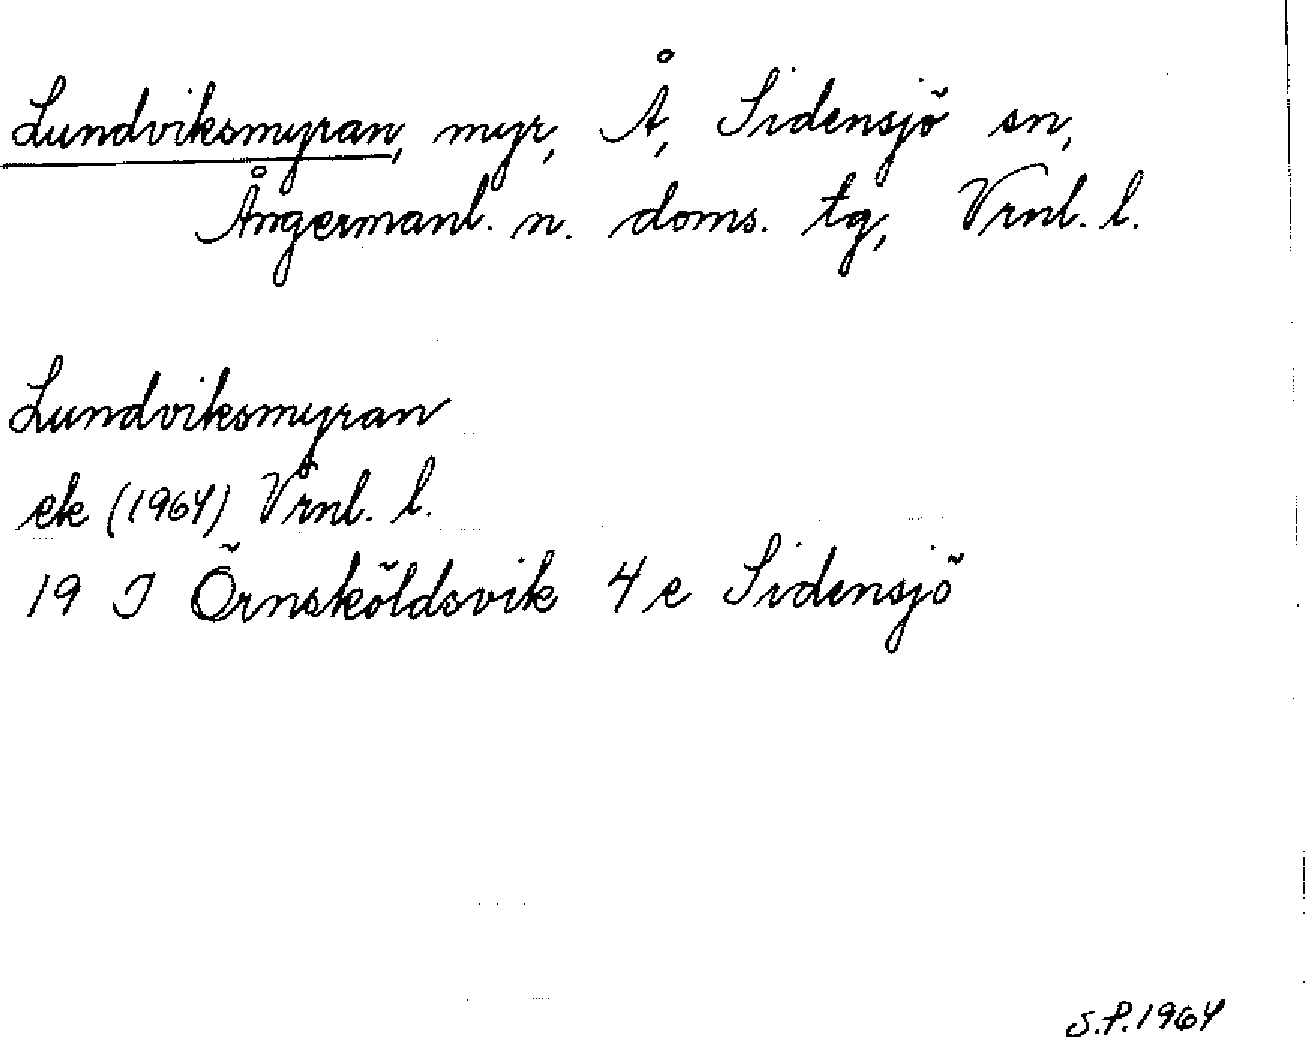 Lundviksmyran, myr, Å, Sidensjö sn,
Ångermanl. n. doms. tg, Vrnl. l.
Lundviksmyran
ek (1964) Vrnl. l.
19 I Örnsköldsvik 4 e Sidensjö
S.P. 1964